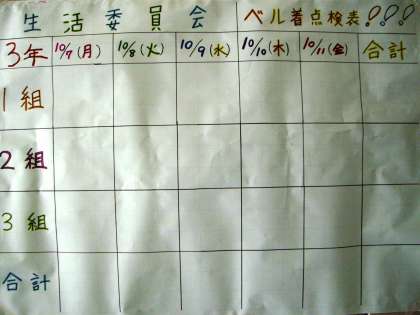 生活委員会 ベル着点検表!!!
3年 10/7(月) 10/8(火) 10/9(水) 10/10(木) 10/11(金) 合計
1組
2組
3組
合計